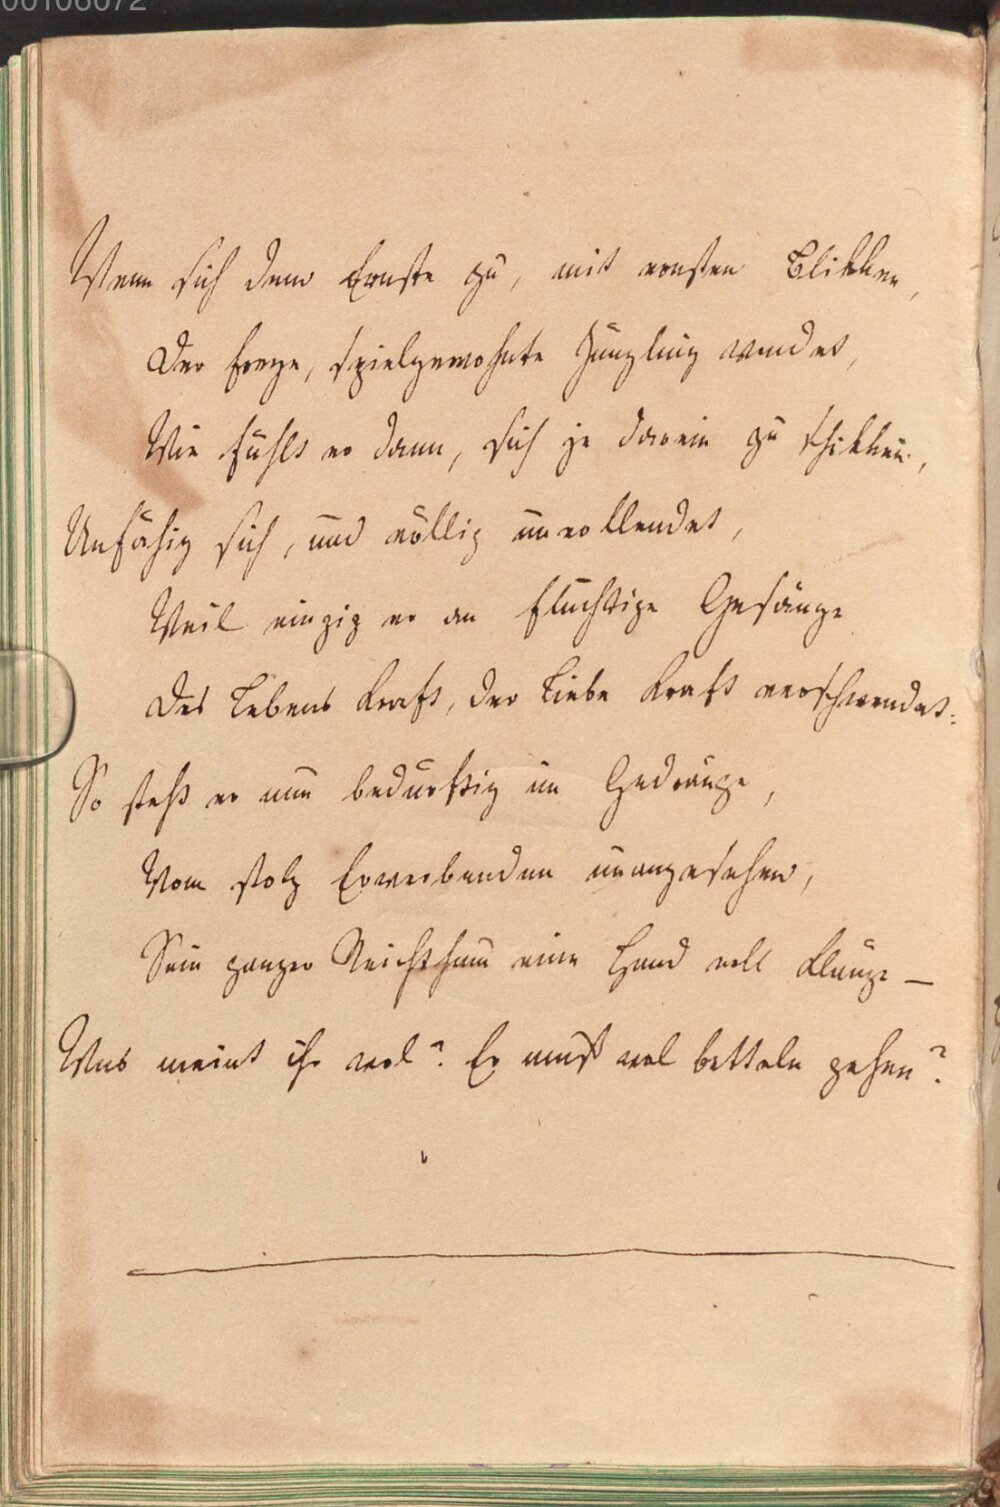 00106072
Wenn sich dem Ernste zu, mit ernsten Blikken,
Der freye, spielgewohnte Jüngling wendet,
Wie fühlt er dann, sich je darein zu schikken,
Unfähig sich, und völlig unvollendet,
Weil einzig er an flüchtige Gesänge
Des Lebens Kraft, der Liebe Kraft verschwendet:
So steht er nun bedürftig im Gedränge,
Vom stolz Erwerbenden unangesehen,
Sein ganzer Reichthum eine Hand voll Klänge —
Was meint ihr wol? Er muß wol betteln gehen?